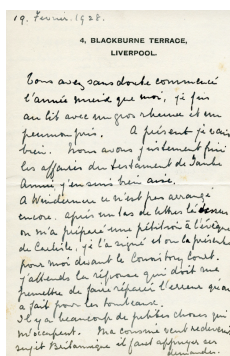 19. Février. 1928.
4, BLACKBURNE TERRACE,
LIVERPOOL.
Vous avez sans doute commencé
l'année mieux que moi, je fus
au lit avec un gros rhume et un
peu mon pris. A présent je vais
bien. Nous avons justement fini
les affaires du testament de Tante
Annie j'en suis bien aise.
A Windermere ce n'est pas arrangé
encore. après un tas de lettres
on m'a préparé une pétition à l'évêque
de Carlisle, je l'ai signé et on la présente
pour moi devant le Consistory Court.
J'attends la réponse qui doit me
permettre de faire réparer l'erreur qu'on
a fait pour les tombeaux.
Il y a beaucoup de petites choses qui
m'occupent. Ma cousine veut redevenir
sujet Britannique il faut appuyer sa
demande.